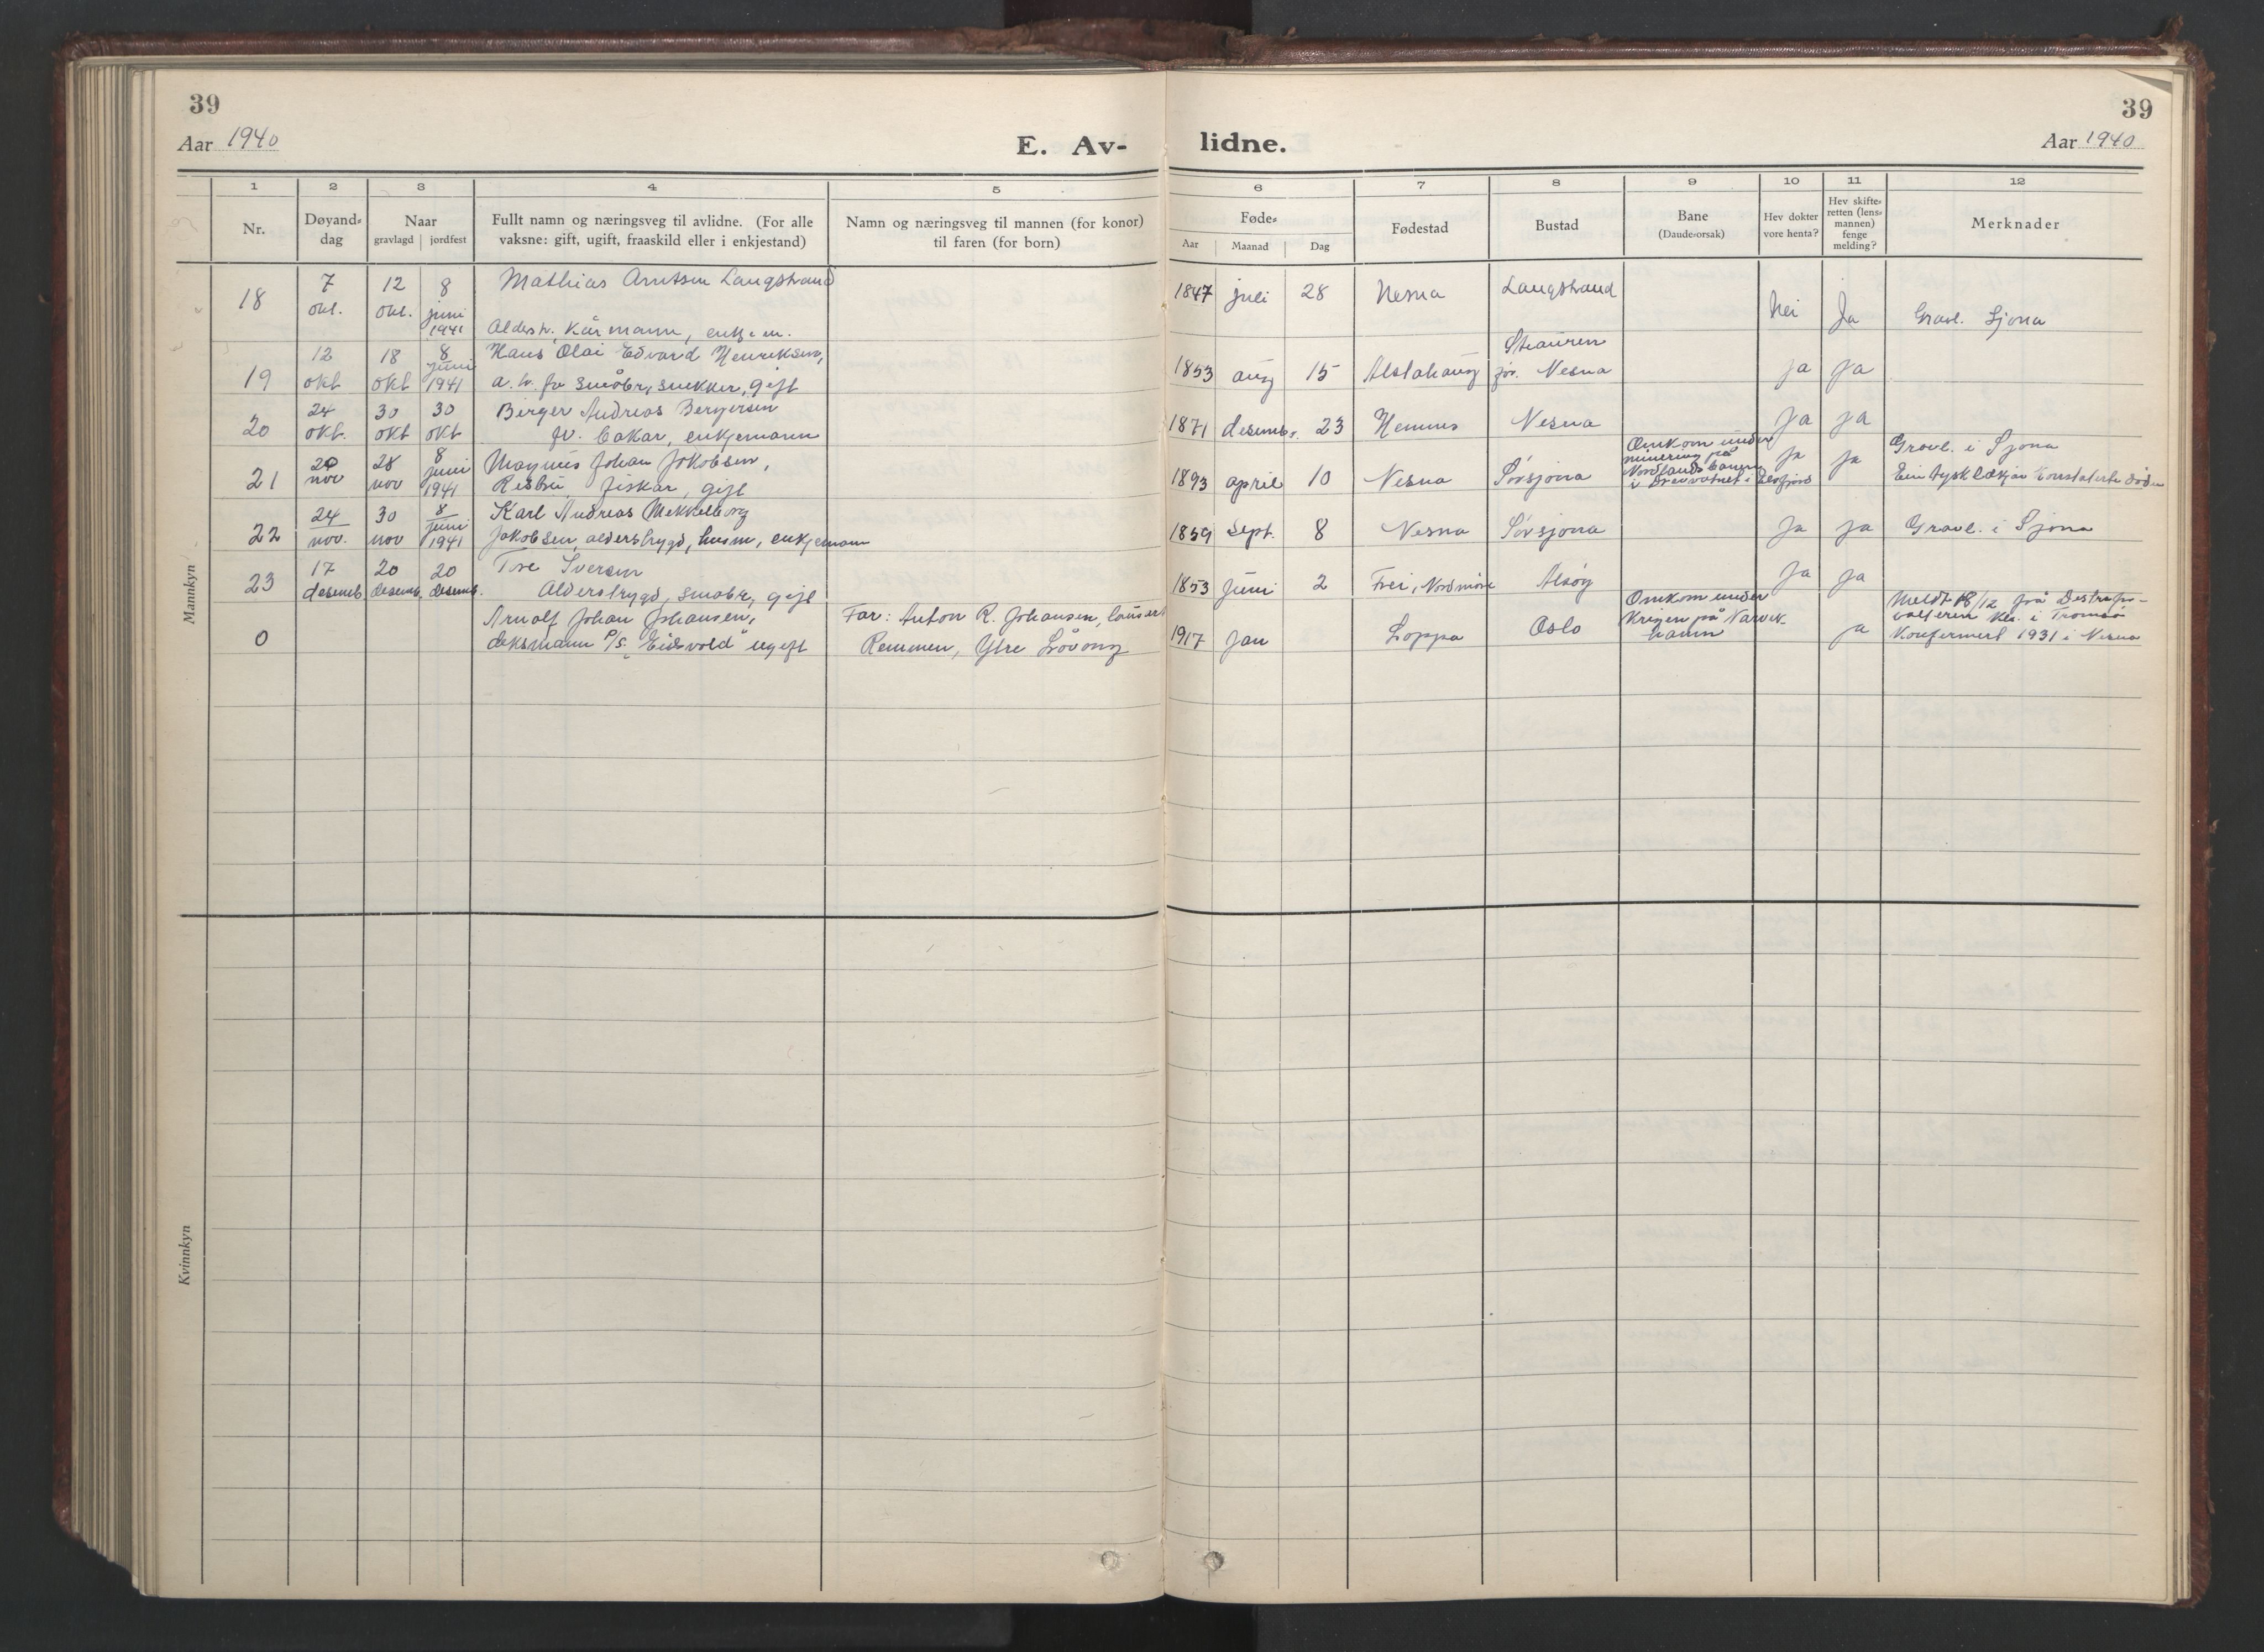 39
Aar 1940
E. Av-
1 2 3 4 5
Nr.
Døyand-
dag
Naar
gravlagd jordfest
Fullt namn og næringsveg til avlidne. (For alle
vaksne: gift, ugift, fraaskild eller i enkjestand)
Namn og næringsveg til mannen (for konor)
til faren (for born)
Mannkyn
18 7 okt. 12 okt. 8 juni 1941
Mathias Arntsen Langstrand
Alderstr. kårmann, enkjem.
19 12 okt 18 okt 8 juni 1941
Hans Olai Edvard Henriksen,
a. tr. fv småbr, snekker, gift
20 24 okt. 30 okt 30 okt
Birger Andreas Bergersen
fv. bakar, enkjemann
21 20 nov 28 nov 8 juni 1941
Magnus Johan Jakobsen,
fiskar, gift
22 24 nov. 30 nov 8 juni 1941
Karl Andreas
Jakobsen, alderstrygd, husm, enkjemann
23 17 desemb 20 desemb. 20 desemb.
Tore Iversen
Alderstrygd, småbr, gift
0
Arnolf Johan Johansen,
deksmann P/S. "Eidsvold" ugift
Far: Anton R. Johansen,
Remmen, Ytre Låvong
Kvinnkyn
39
lidne. Aar 1940
6 7 8 9 10 11 12
Føde-
Aar Maanad Dag
Fødestad
Bustad
Bane
(Daude-orsak)
Hev dokter
vore henta?
Hev skifte-
retten (lens-
mannen)
fenge
melding?
Merknader
1847 juli 28 Nesna Langstrand Nei Ja Gravl. Sjona
1853 aug 15 Alstahaug
Stauren
før. Nesna
Ja Ja
1871 desemb. 23 Hemnes Nesna Ja Ja
1893 april 10 Nesna Sørsjona
Omkom under
minering på
Nordlandsbanen
i
Ja Ja
Gravl. i Sjona
Ein tysk lækjar konstaterte døden
1859 Sept. 8 Nesna Sørsjona Ja Ja Gravl. i Sjona
1853 Juni 2 Frei, Nordmøre Alsøy Ja Ja
1917 Jan Loppa Oslo
Omkom under
Krigen på Narvik-
hamn
Ja
Meldt 18/12 frå
i Tromsø
Konfermert 1931 i Nesna